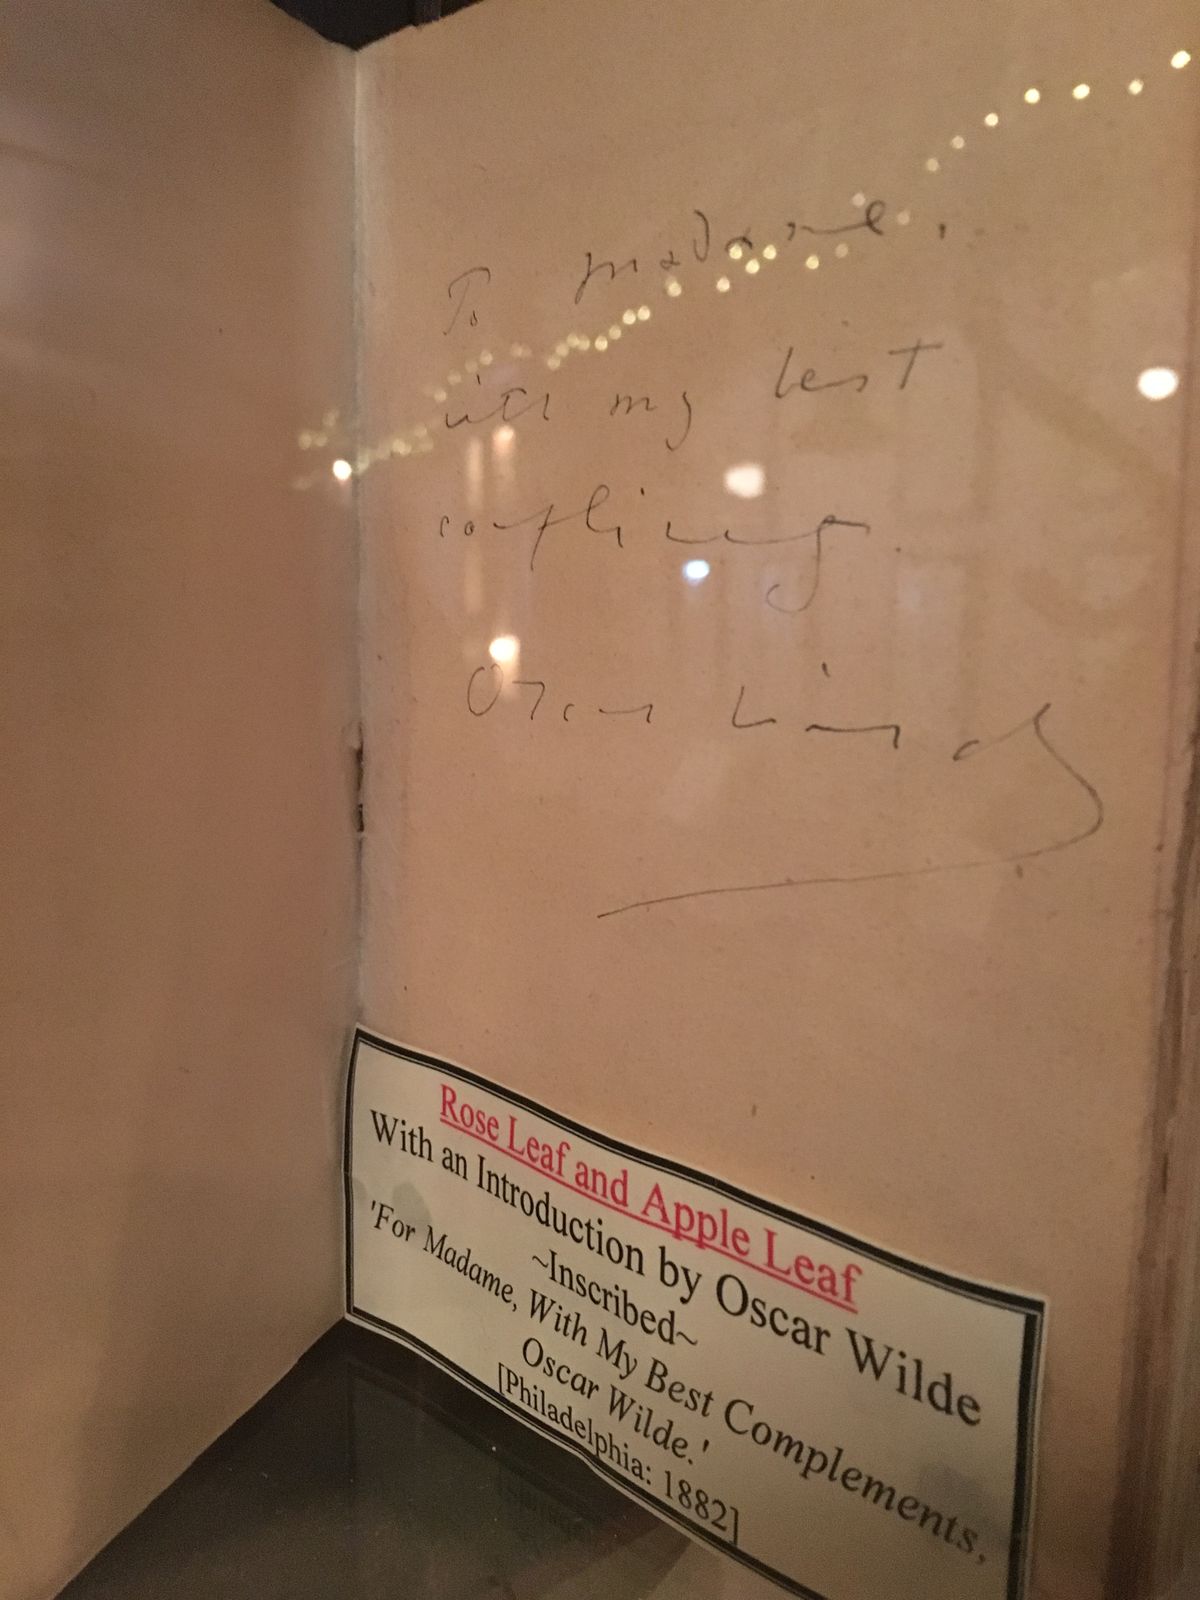 To Madame.
with my best
compliments.
Oscar Wilde
Rose Leaf and Apple Leaf
With an Introduction by Oscar Wilde
~Inscribed~
'For Madame, With My Best Complements,
Oscar Wilde.'
[Philadelphia: 1882]